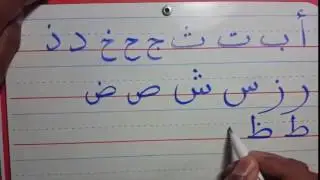 أ ب ت ث ج ح خ د ذ
ر ز س ش ص ض
ط ظ